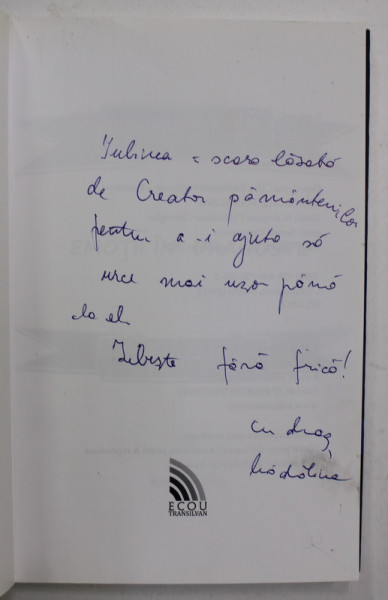 Iubirea = scara lăsată
de Creator pământenilor
pentru a-i ajuta să
urce mai ușor până
la el.
Iubește fără frică!
Cu drag,
Mădălina
ECOU
TRANSILVAN